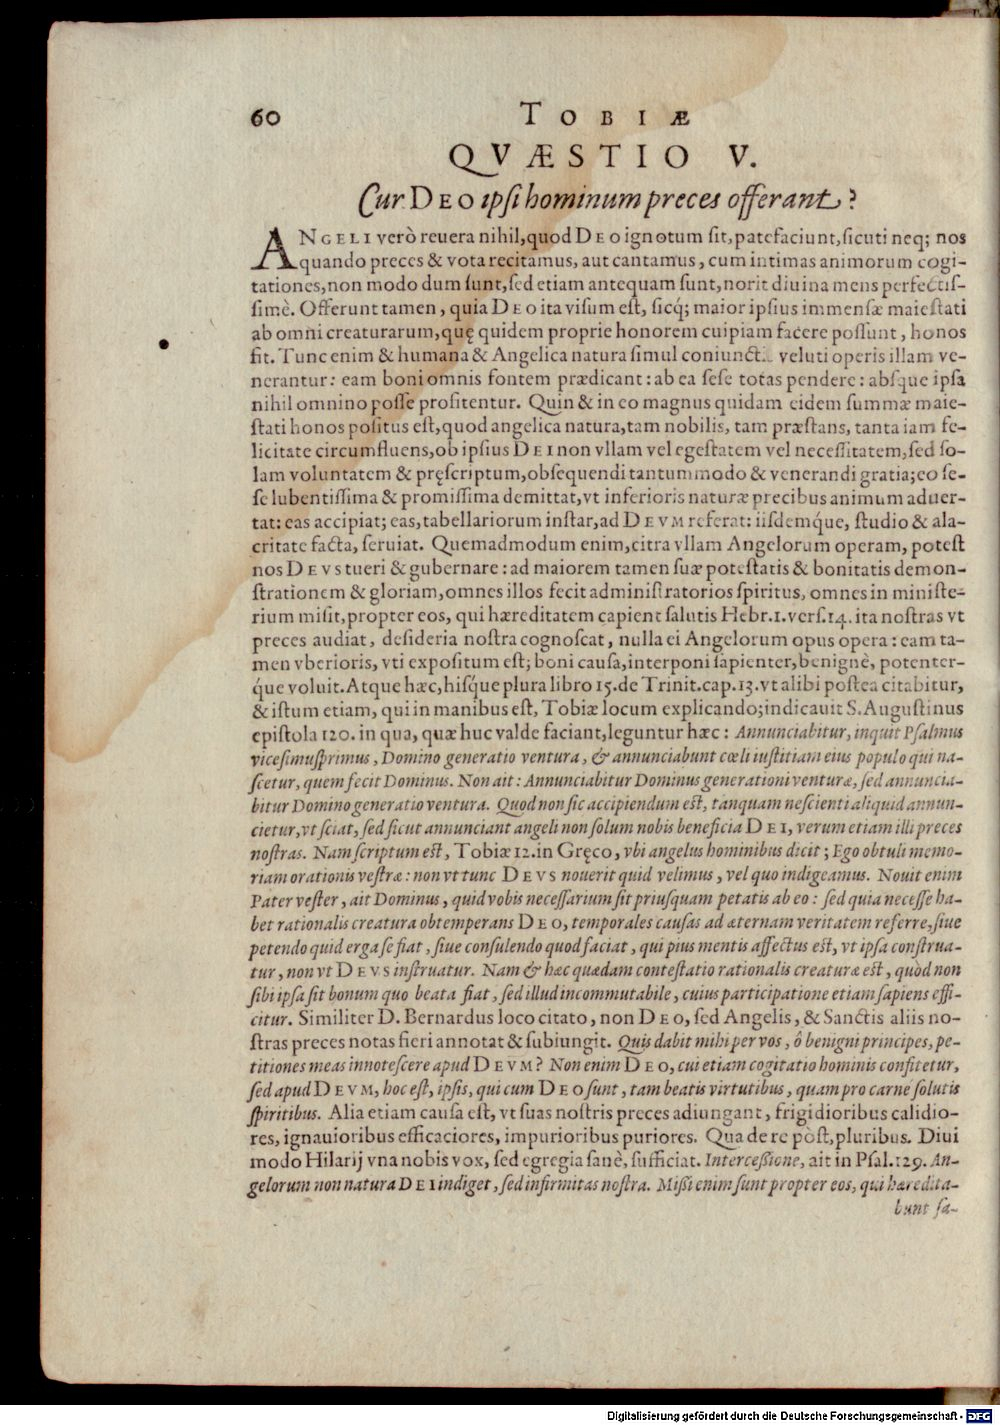 60 TOBIÆ
QVÆSTIO V.
Cur DEO ipſi hominum preces offerant?
ANGELI verò reuera nihil, quod DEO ignotum ſit, patefaciunt, ſicuti neq; nos
quando preces & vota recitamus, aut cantamus, cum intimas animorum cogi-
tationes, non modo dum ſunt, ſed etiam antequam ſunt, norit diuina mens perfectiſ-
ſimè. Offerunt tamen, quia DEO ita viſum eſt, ſicq́; maior ipſius immenſæ maieſtati
ab omni creaturarum, quę quidem proprie honorem cuipiam facere poſſunt, honos
fit. Tunc enim & humana & Angelica natura ſimul coniunctæ veluti operis illam ve-
nerantur: eam boni omnis fontem prædicant: ab ea ſeſe totas pendere: abſque ipſa
nihil omnino poſſe profitentur. Quin & in eo magnus quidam eidem ſummæ maie-
ſtati honos poſitus eſt, quod angelica natura, tam nobilis, tam præſtans, tanta iam fe-
licitate circumfluens, ob ipſius DEI non vllam vel egeſtatem vel neceſſitatem, ſed ſo-
lam voluntatem & pręſcriptum, obſequendi tantummodo & venerandi gratia; eo ſe-
ſe lubentiſſima & promiſſima demittat, vt inferioris naturæ precibus animum aduer-
tat: eas accipiat; eas, tabellariorum inſtar, ad DEVM referat: iiſdemq́ue, ſtudio & ala-
critate facta, ſeruiat. Quemadmodum enim, citra vllam Angelorum operam, poteſt
nos DEVS tueri & gubernare: ad maiorem tamen ſuæ poteſtatis & bonitatis demon-
ſtrationem & gloriam, omnes illos fecit adminiſtratorios ſpiritus, omnes in miniſte-
rium miſit, propter eos, qui hæreditatem capient ſalutis Hebr. 1. verſ. 14. ita noſtras vt
preces audiat, deſideria noſtra cognoſcat, nulla ei Angelorum opus opera: eam ta-
men vberioris, vti expoſitum eſt; boni cauſa, interponi ſapienter, benignè, potenter-
q́ue voluit. Atque hæc, hiſq́ue plura libro 15. de Trinit. cap. 13. vt alibi poſtea citabitur,
& iſtum etiam, qui in manibus eſt, Tobiæ locum explicando; indicauit S. Auguſtinus
epiſtola 120. in qua, quæ huc valde faciant, leguntur hæc: Annunciabitur, inquit Pſalmus
viceſimuſprimus, Domino generatio ventura, & annunciabunt cœli iuſtitiam eius populo qui na-
ſcetur, quem fecit Dominus. Non ait: Annunciabitur Dominus generationi venturæ, ſed annuncia-
bitur Domino generatio ventura. Quod non ſic accipiendum eſt, tanquam neſcienti aliquid annun-
cietur, vt ſciat, ſed ſicut annunciant angeli non ſolum nobis beneficia DEI, verum etiam illi preces
noſtras. Nam ſcriptum eſt, Tobiæ 12. in Gręco, vbi angelus hominibus dicit; Ego obtuli memo-
riam orationis veſtræ: non vt tunc DEVS nouerit quid velimus, vel quo indigeamus. Nouit enim
Pater veſter, ait Dominus, quid vobis neceſſarium ſit priuſquam petatis ab eo: ſed quia neceſſe ha-
bet rationalis creatura obtemperans DEO, temporales cauſas ad æternam veritatem referre, ſiue
petendo quid erga ſe fiat, ſiue conſulendo quod faciat, qui pius mentis affectus eſt, vt ipſa conſtrua-
tur, non vt DEVS inſtruatur. Nam & hæc quædam conteſtatio rationalis creaturæ eſt, quòd non
ſibi ipſa ſit bonum quo beata fiat, ſed illud incommutabile, cuius participatione etiam ſapiens effi-
citur. Similiter D. Bernardus loco citato, non DEO, ſed Angelis, & Sanctis aliis no-
ſtras preces notas fieri annotat & ſubiungit. Quis dabit mihi per vos, ô benigni principes, pe-
titiones meas innoteſcere apud DEVM? Non enim DEO, cui etiam cogitatio hominis confitetur,
ſed apud DEVM, hoc eſt, ipſis, qui cum DEO ſunt, tam beatis virtutibus, quam pro carne ſolutis
ſpiritibus. Alia etiam cauſa eſt, vt ſuas noſtris preces adiungant, frigidioribus calidio-
res, ignauioribus efficaciores, impurioribus puriores. Qua de re pòſt, pluribus. Diui
modo Hilarij vna nobis vox, ſed egregia ſanè, ſufficiat. Interceſſione, ait in Pſal. 129. An-
gelorum non natura DEI indiget, ſed infirmitas noſtra. Miſſi enim ſunt propter eos, qui hæredita-
bunt ſa-
Digitalisierung gefördert durch die Deutsche Forschungsgemeinschaft - DFG